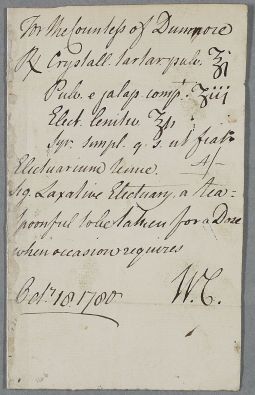 For the Countess of Dunmore
℞ Crystall. tartar. pulv. ʒj
Pulv. e jalap. comp. ʒiij
Elect. lenitiv.
Syr. simpl. q. s. ut fiat
Electuarium tenue.
Sig. Laxative Electuary, a tea-
spoonful to be taken for a Dose
when occasion requires
Octr. 18 1780 W. C.